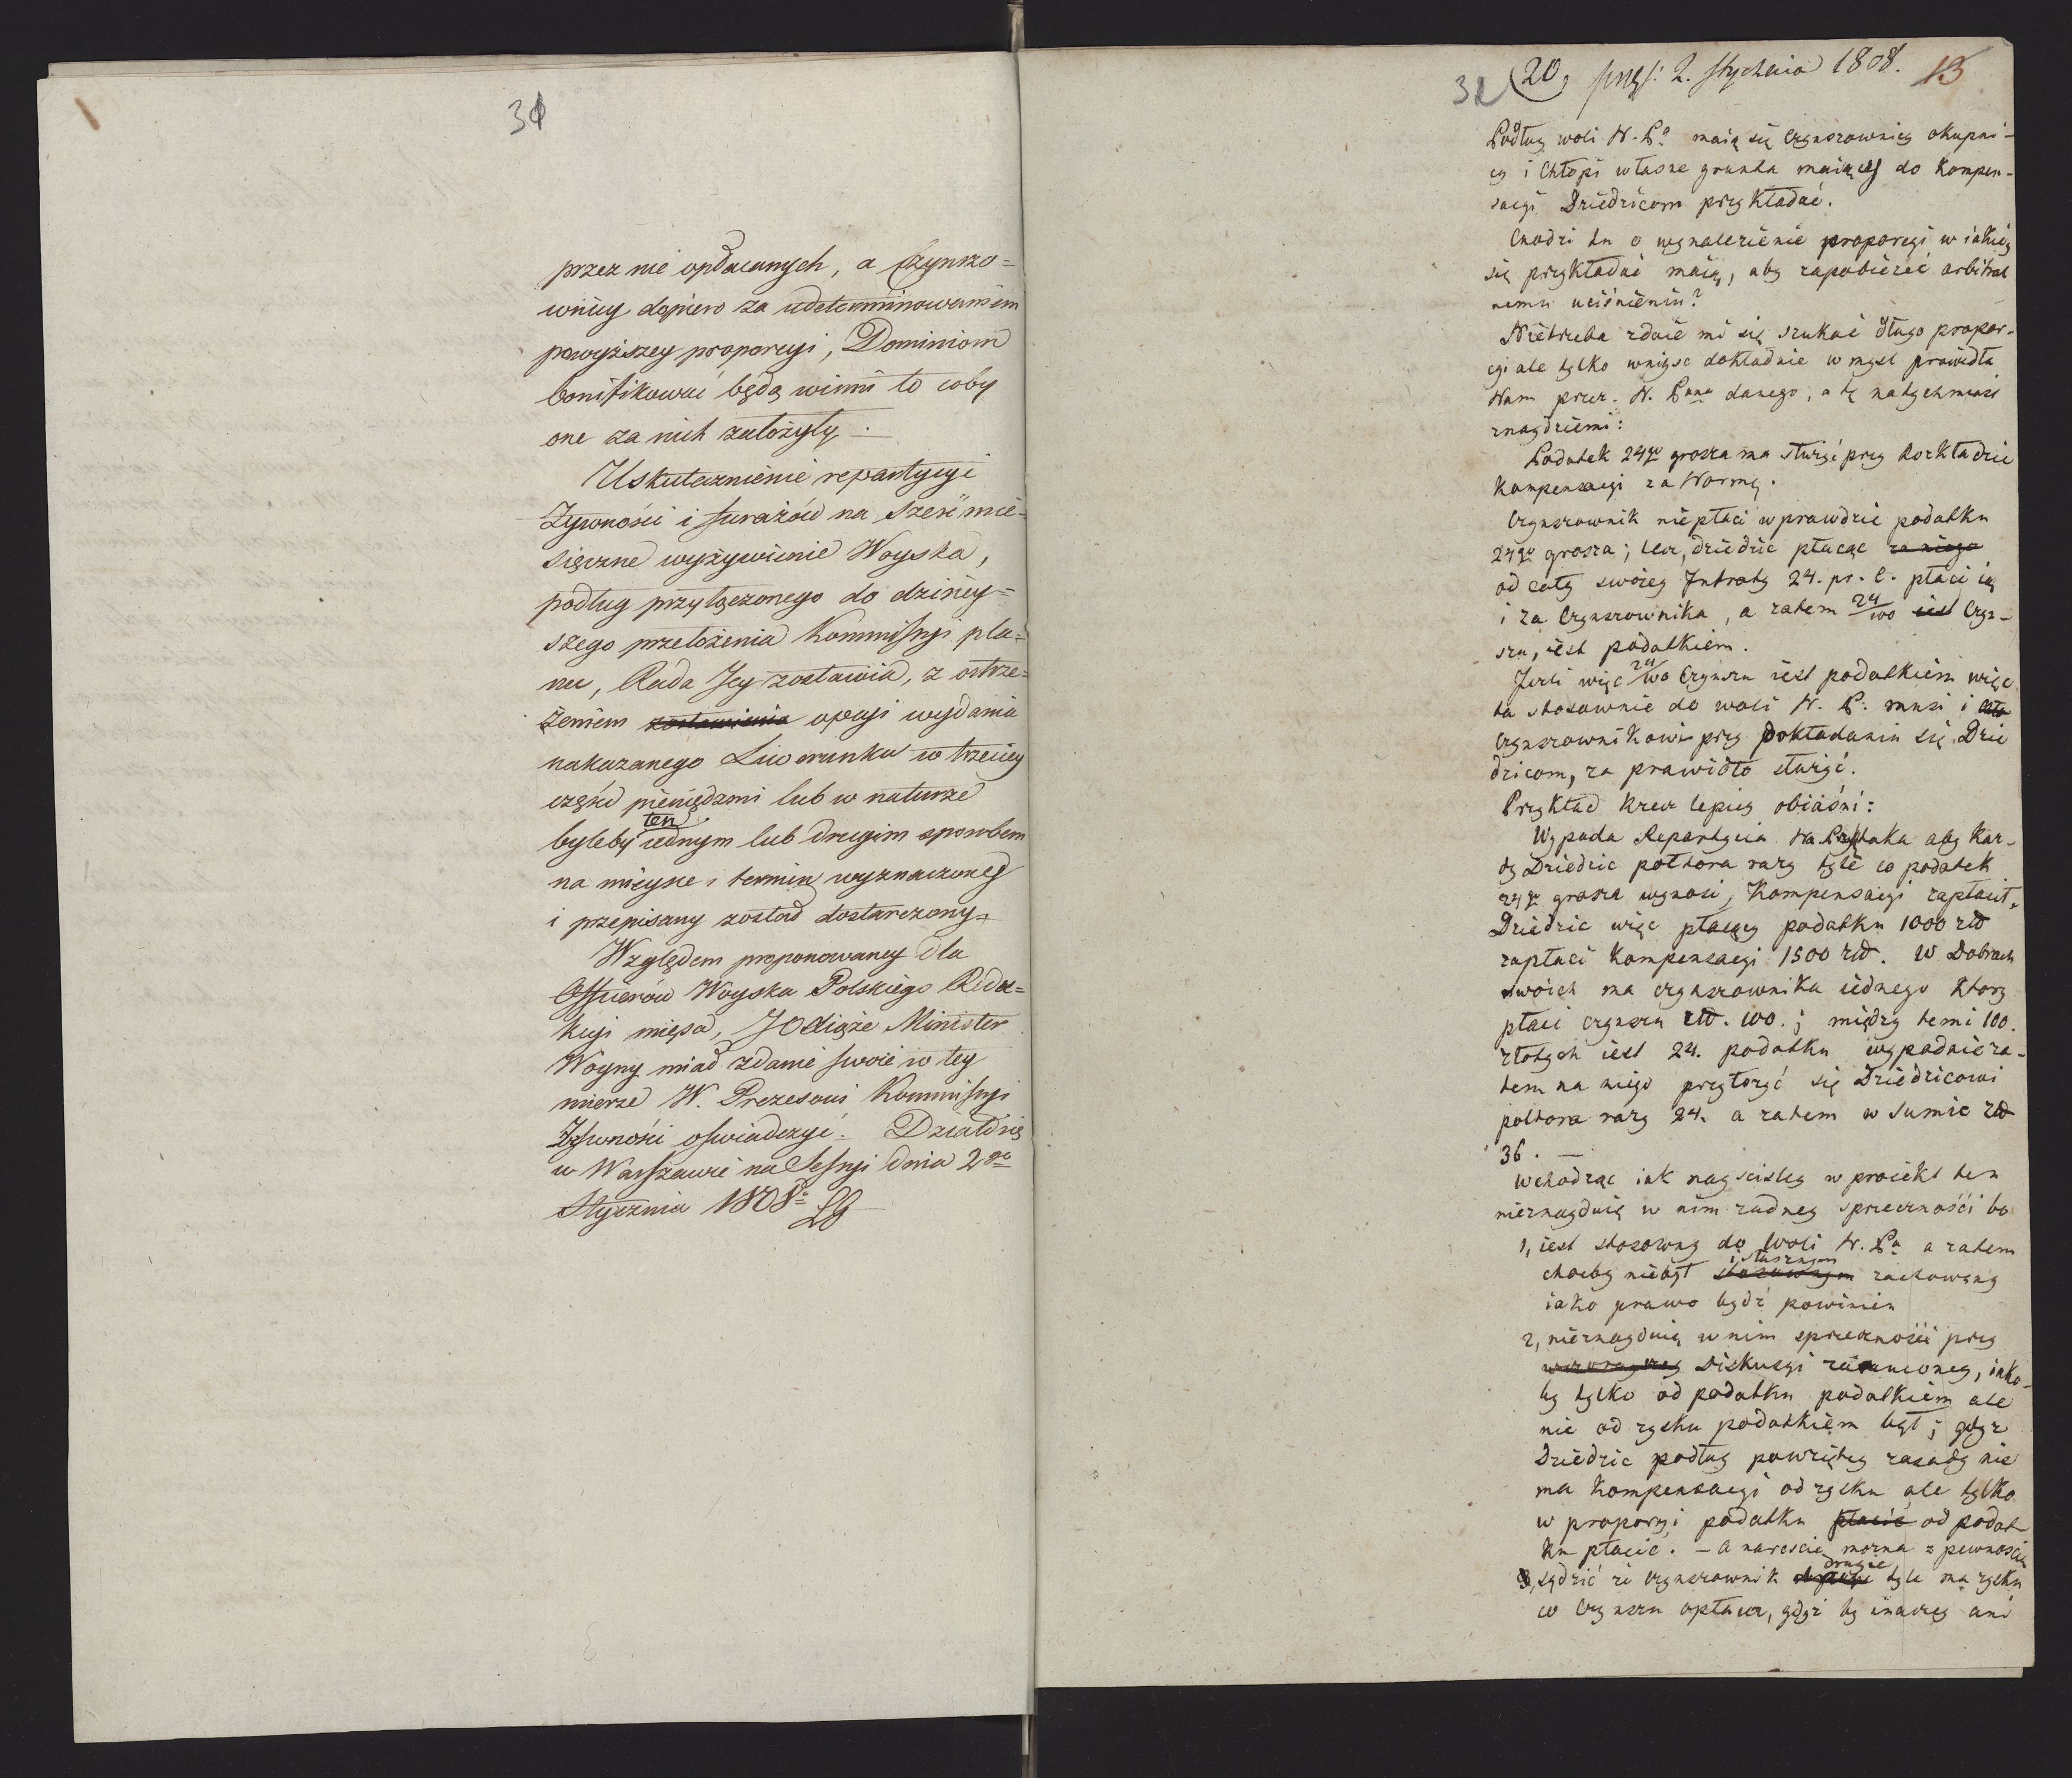 31
przez nie opłacanych, a Czynszo=
wnicy dopiero za udeterminowaniem
powyższey proporcyi, Dominiom
bonifikować będą winni to coby
one za nich założyły. —
Uskutecznienie repartycyi
Żywności i furażów na sześć mie=
sięczne wyżywienie Woyska,
podług przyłączonego do dzisiey=
szego przełożenia Kommissyi pla=
nu, Rada Jey zostawia, z ostrze=
żeniem zostawienia opcyi wydania
nakazanego Liwerunku w trzeciey
części pieniędzmi lub w naturze
ten
byleby iednym lub drugim sposobem
na mieysce i termin wyznaczoney
i przepisany został dostarczony.
Względem proponowaney dla
Officerów Woyska Polskiego Redu=
kcyi mięsa, JO Xiąże Minister
Woyny miał zdanie swoie w tey
mierze W. Prezesowi Kommissyi
Żywności oświadczyć. Działo się
w Warszawie na Sessyi dnia 2go
Stycznia 1808 r.
32 (20, 2. Stycznia 1808. 13
Podług woli N. Pa maią się Czynszownicy okupni-
cy i Chłopi własne grunta maiący do Kompen-
sacyi Dziedzicom przykładać.
Chodzi tu o wynalezienie proporcyi w iakiey
się przykładać maią, aby zapobieżeć arbitral
nemu uciśnieniu?
Nietrzeba zdaie mi się szukać długo propor-
cyi ale tylko wniyść dokładnie w myśl prawidła
Nam przez N. Pana danego, a tę natychmiast
znaydziemi:
Podatek 24go grosza ma służyć przy Rozkładzie
Kompensacyi za Normę.
Czynszownik niepłaci wprawdzie podatku
24go grosza; lecz, dziedzic płacąc za niego
od całey swoiey Intraty 24. pr. C. płaci ią
i za Czynszownika, a zatem 24/100 iest Czyn-
szu, iest podatkiem.
Jeżli więc 24/100 Czynszu iest podatkiem więc
ta stosownie do woli N. P. musi i
Czynszownikowi przy dokładaniu się Dzie
dzicom, za prawidło służyć.
Przykład Rzecz lepiey obiaśni:
Wypada Repartycia Na Przykład aby każ-
dy Dziedzic półtora razy tyle co podatek
24go grosza wynosi, Kompensacyi zapłacił.
Dziedzic więc płacący podatku 1000 zł
zapłaci Kompensacyi 1500 zł. W Dobrach
swoich ma czynszownika iednego który
płaci czynszu zł. 100.; między temi 100.
złotych iest 24. podatku wypadnie za-
tem na niego przyłożyć się Dziedzicowi
półtora razy 24. a zatem w Sumie zł
36. —
Wchodząc iak nayściśley w proiekt ten
nieznayduię w nim żadney sprzeczności bo
1, iest stosowny do Woli N. Pa a zatem
i słusznym
choćby niebył stosownym zachowany
iako prawo bydź powinien
2, nieznayduię w nim sprzeczności przy
Diskusyi zarzuconey, iako-
by tylko od podatku podatkiem ale
nie od zysku podatkiem był; gdyż
Dziedzic podług powziętey zasady nie
ma Kompensacyi od zysku ale tylko
w proporcyi podatku płacić od podat
ku płacić. — A nareszcie można z pewnością
drugie
3, sądzić że czynszownik tyle ma zysku
co Czynszu opłaca, gdyż by inaczey ani